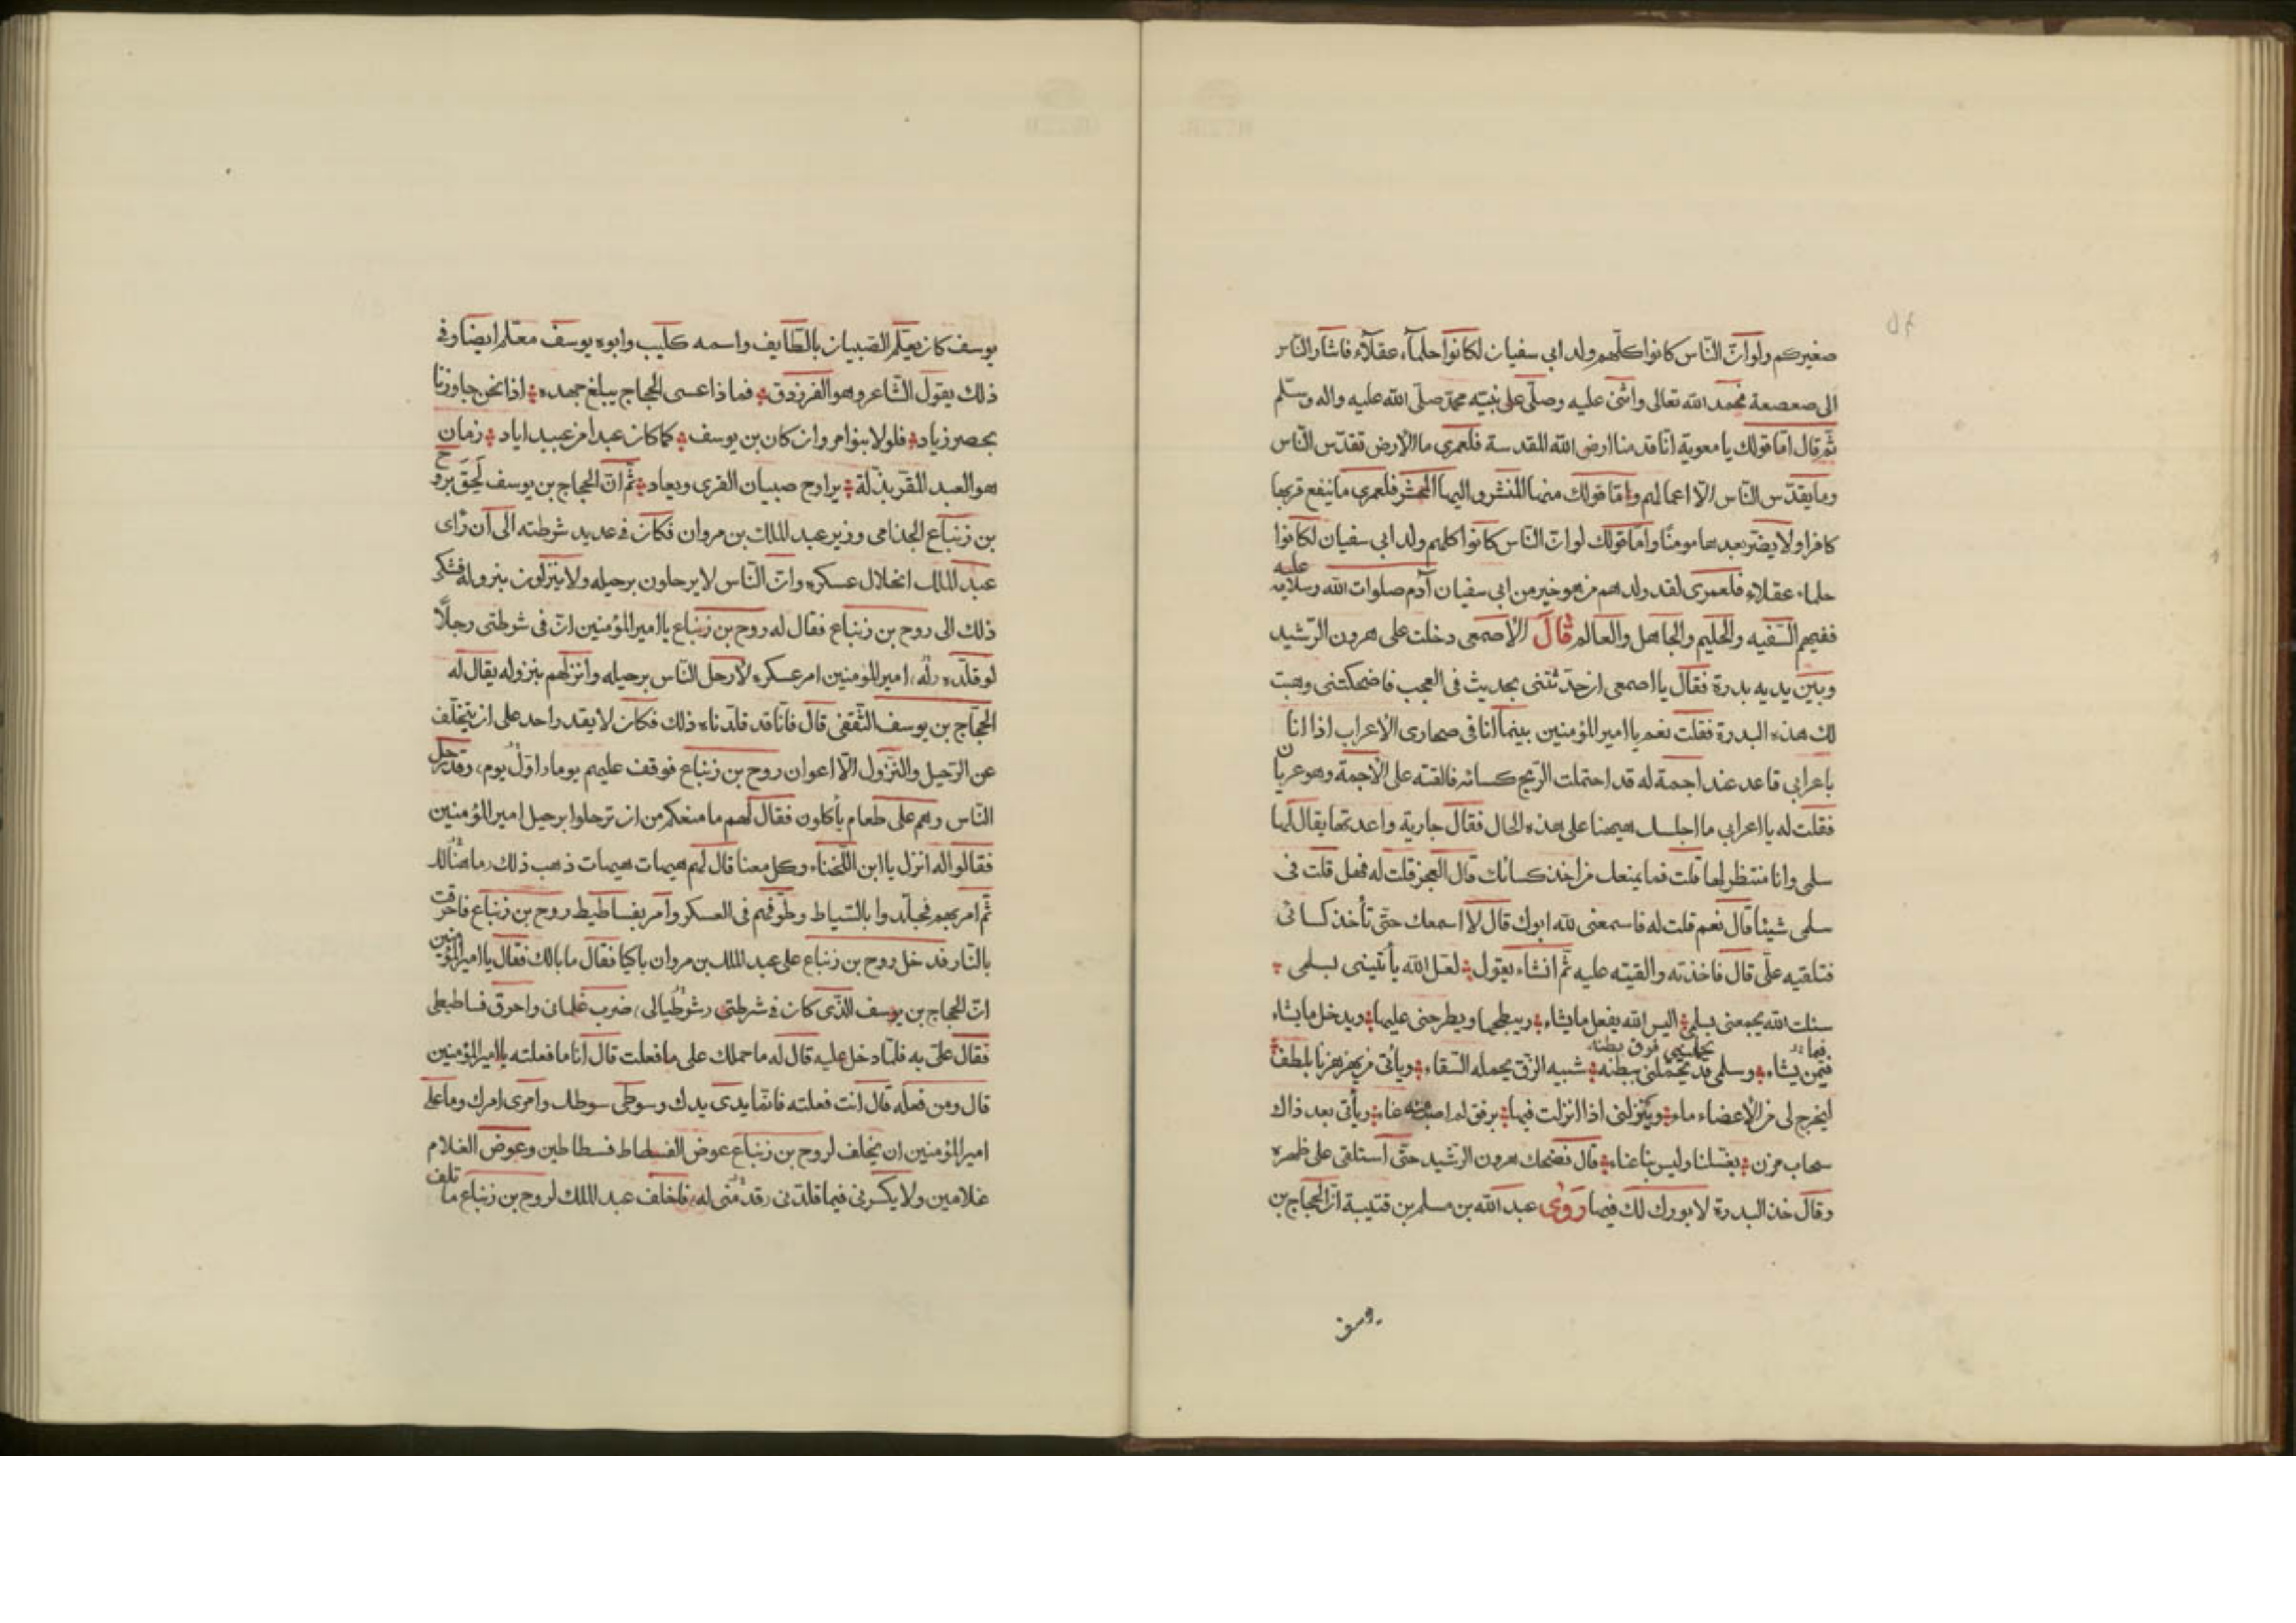 صغيركم ولو انّ النّاس كانوا كلّهم ولد ابى سفيان لكانوا حلمآء عقلآء فاشار النّاس
الى صعصعة فحمد الله تعالى واثنى عليه وصلّى على نبيّه محمّد صلّى الله عليه واله وسلّم
ثمّ قال امّا قولك يا معوية انّا قدمنا ارض الله المقدسة فلعمرى ما الارض تقدّس النّاس
وما يقدّس النّاس الّا اعمالهم وامّا قولك منها المنشر واليها المحشر فلعمرى ما ينفع قربها
كافرا ولا يضرّ بعدها مومنًا وامّا قولك لو انّ النّاس كانوا كلهم ولد ابى سفيان لكانوا
حلماء عقلاء فلعمرى لقد ولدهم من هو خير من ابى سفيان آدم صلوات الله وسلامه عليه
ففيهم السّفيه والحليم والجاهل والعالم قال الاصمعى دخلت على هرون الرّشيد
وبين يديه بدرة فقال يا اصمعى ان حدّثتنى بحديث فى العجب فاضحكتنى وهبت
لك هذه البدرة فقلت نعم يا امير المؤمنين بينما انا فى صحارى الاعراب اذا انا
باعرابي قاعد عند اجمة له قد احتملت الرّيح كسائه فالقته على الاجمة وهو عريان
فقلت له يا اعرابي ما اجلسك هيهنا على هذه الحال فقال جارية واعدتها يقال لها
سلمى وانا منتظر لها قلت فما يمنعك من اخذ كسائك قال العجز قلت له فهل قلت فى
سلمى شيئا قال نعم قلت له فاسمعنى لله ابوك قال لا اسمعك حتّى تأخذ كسائى
فتلقيه علىّ قال فاخذته والقيته عليه ثمّ انشاء يقول لعل الله يأتينى بسلمى
سئلت الله يجمعنى بسلمى اليس الله يفعل ما يشاء ويبطحها ويطرحنى عليها ويدخل ما يشاء
فيما تحملينى فوق بطنه
فيمن يشاء وسلمى قد تحمّلنى ببطنه شبيه الزّق يحمله السّقاء ويأتى من يهزهزنا بلطف
ليخرج لى من الاعضاء ماء وينزلنى اذا انزلت فيها برفق لم اصب منه عناء ويأتى بعد ذاك
سحاب مزن يغسلنا وليس بنا عناء قال فضحك هرون الرشيد حتّى استلقى على ظهره
وقال خذ البدرة لا بورك لك فيها روى عبد الله بن مسلم بن قتيبة انّ الحجاج بن
يوسف
يوسف كان يعلّم الصّبيان بالطّايف واسمه كليب وابوه يوسف معلّم ايضا وفى
ذلك يقول الشّاعر وهو الفرزدق فماذا عسى الحجاج يبلغ جهده اذا نحن جاوزنا
بحصر زياد فلولا بنوا مروان كان بن يوسف كما كان عبدا من عبيد اياد زمان
هو العبد المقر بذلّة يراوح صبيان القرى ويعاد ثمّ انّ الحجاج بن يوسف لَحِقَ بروح
بن زنباع الجذامى وزير عبد الملك بن مروان فكان فى عديد شرطته الى ان رأى
عبد الملك انحلال عسكره وانّ النّاس لا يرحلون برحيله ولا ينزلون بنزوله فشكى
ذلك الى روح بن زنباع فقال له روح بن زنباع يا امير المؤمنين انّ فى شرطتى رجلًا
لو قلّده امير المؤمنين امر عسكره لارحل النّاس برحيله وانزلهم بنزوله يقال له
الحجّاج بن يوسف الثّقفى قال فانّا قد قلدناه ذلك فكان لا يقدر احد على ان يتخلّف
عن الرّحيل والنّزول الّا اعوان روح بن زنباع فوقف عليهم يوما اوّل يوم وقد رحل
النّاس وهم على طعام يأكلون فقال لهم ما منعكم من ان ترحلوا برحيل امير المؤمنين
فقالوا له انزل يا ابن اللّخناء وكل معنا قال لهم هيهات هيهات ذهب ذلك ما هنالك
ثمّ امر بهم فجلّدوا بالسّياط وطوّفهم فى العسكر وامر بفساطيط روح بن زنباع فاحرقت
بالنّار فدخل روح بن زنباع على عبد الملك بن مروان باكيا فقال ما بالك فقال يا امير المؤمنين
انّ الحجاج بن يوسف الّذى كان فى شرطتى ضرب غلمانى واحرق فساطيطى
فقال علىّ به فلمّا دخل عليه قال له ما حملك على ما فعلت قال انا ما فعلته يا امير المؤمنين
قال ومن فعله قال انت فعلته فانّما يدى يدك وسوطى سوطك وامرى امرك وما على
امير المؤمنين ان يخلف لروح بن زنباع عوض الفسطاط فسطاطين وعوض الغلام
غلامين ولا يكسرنى فيما قلدنى وقدّمنى له فاخلف عبد الملك لروح بن زنباع ما تلف